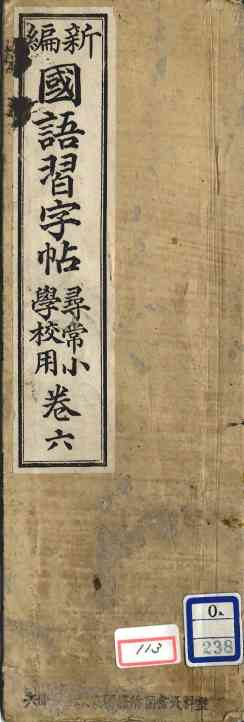 新編
國語習字帖
尋常小
學校用
卷六
113
0.
238